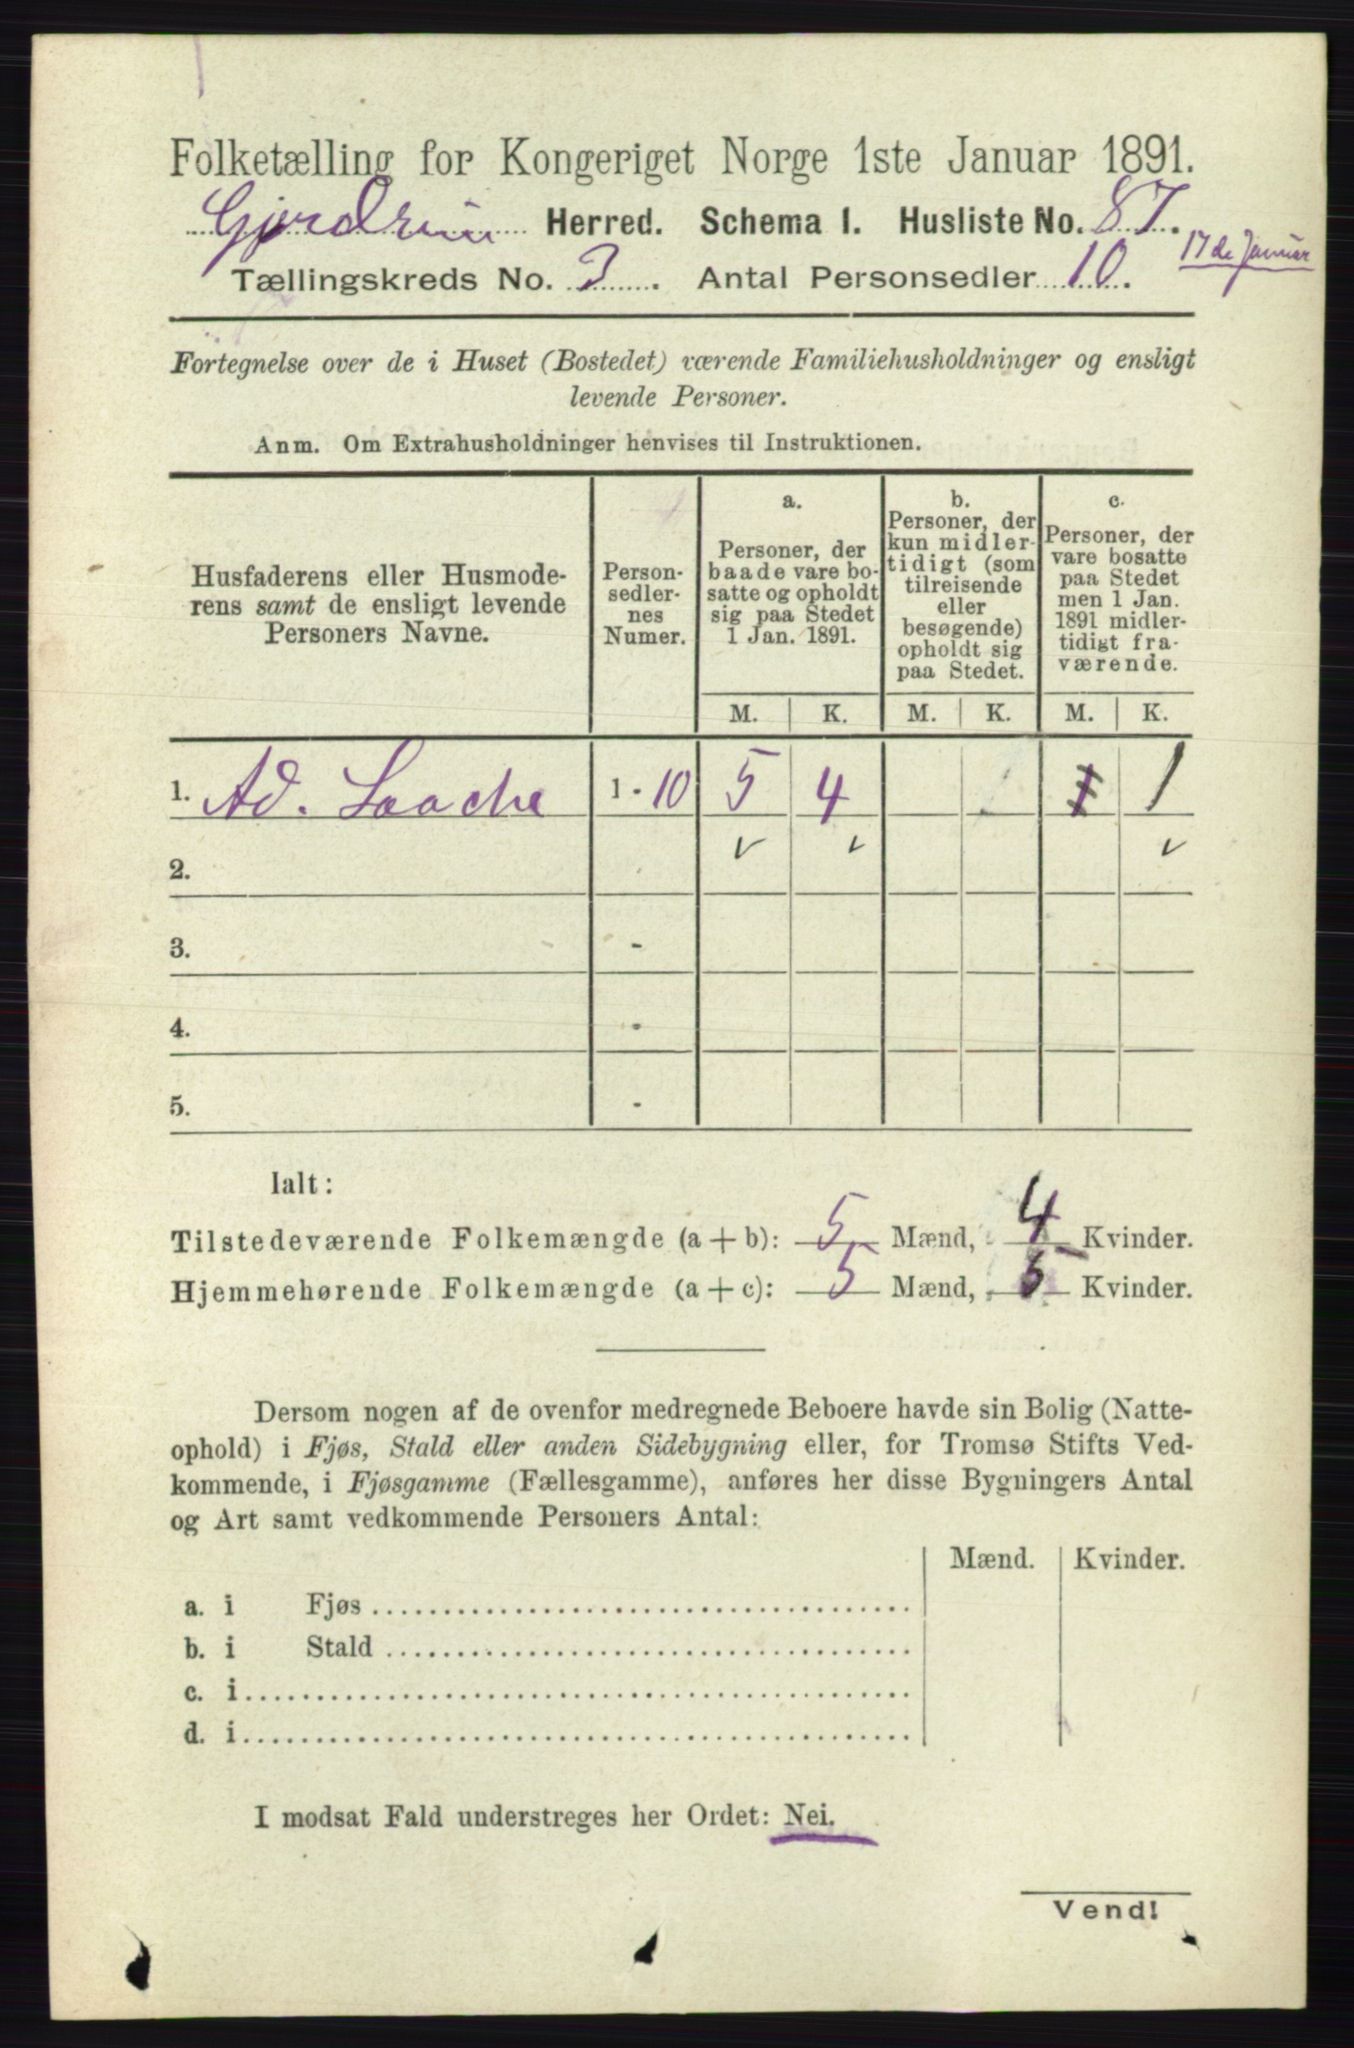 Folketælling for Kongeriget Norge 1ste Januar 1891.
Gjerdrum Herred. Schema I. Husliste No. 87.
17de Januar
Tællingskreds No. 3. Antal Personsedler 10.
Fortegnelse over de i Huset (Bostedet) værende Familiehusholdninger og ensligt
levende Personer.
Anm. Om Extrahusholdninger henvises til Instruktionen.
Husfaderens eller Husmode-
rens samt de ensligt levende
Personers Navne.
Person-
sedler-
nes
Numer.
a.
Personer, der
baade vare bo-
satte og opholdt
sig paa Stedet
1 Jan. 1891.
b.
Personer, der
kun midler-
tidigt (som
tilreisende
eller
besøgende)
opholdt sig
paa Stedet.
c.
Personer, der
vare bosatte
paa Stedet
men 1 Jan.
1891 midler-
tidigt fra-
værende.
M. K. M. K. M. K.
1. Ad. Laache 1 - 10 5 4 1 1
2.
3. -
4. -
5. -
Ialt:
Tilstedeværende Folkemængde (a + b): 5 Mænd, 4 Kvinder.
Hjemmehørende Folkemængde (a + c): 5 Mænd, 5 Kvinder.
Dersom nogen af de ovenfor medregnede Beboere havde sin Bolig (Natte-
ophold) i Fjøs, Stald eller anden Sidebygning eller, for Tromsø Stifts Ved-
kommende, i Fjøsgamme (Fællesgamme), anføres her disse Bygningers Antal
og Art samt vedkommende Personers Antal:
Mænd. Kvinder.
a. i Fjøs
b. i Stald
c. i
d. i
I modsat Fald understreges her Ordet: Nei.
Vend!